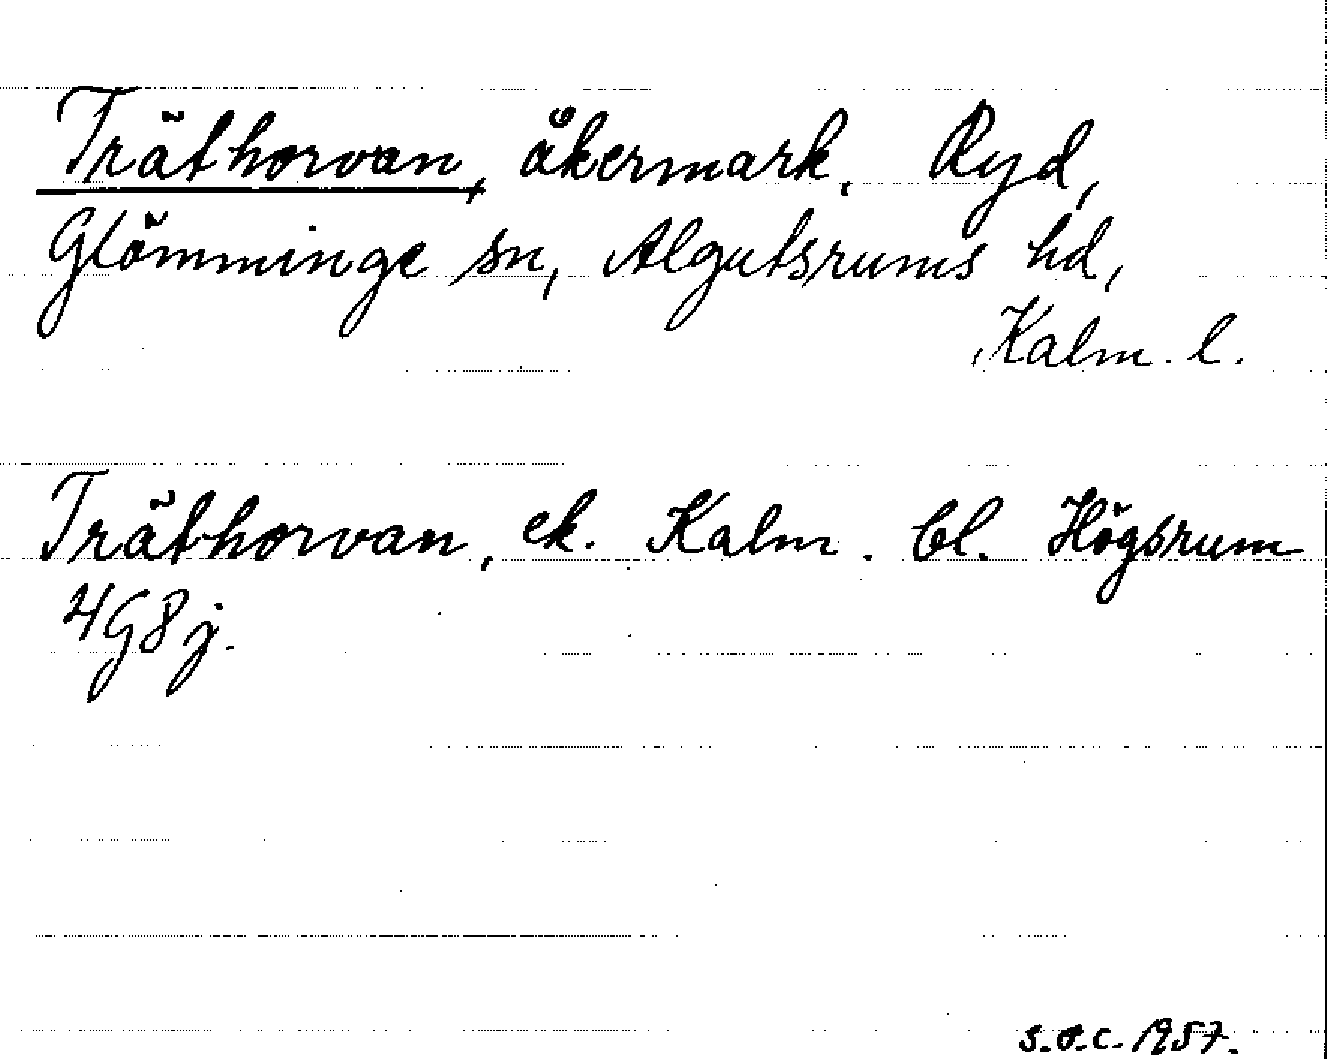 Träthorvan, åkermark. Ryd,
Glömminge sn, Algutsrums hd,
Kalm. l.
Träthorvan, ek. Kalm. bl. Högsrum
4G8j.
S.O.C. 1957.